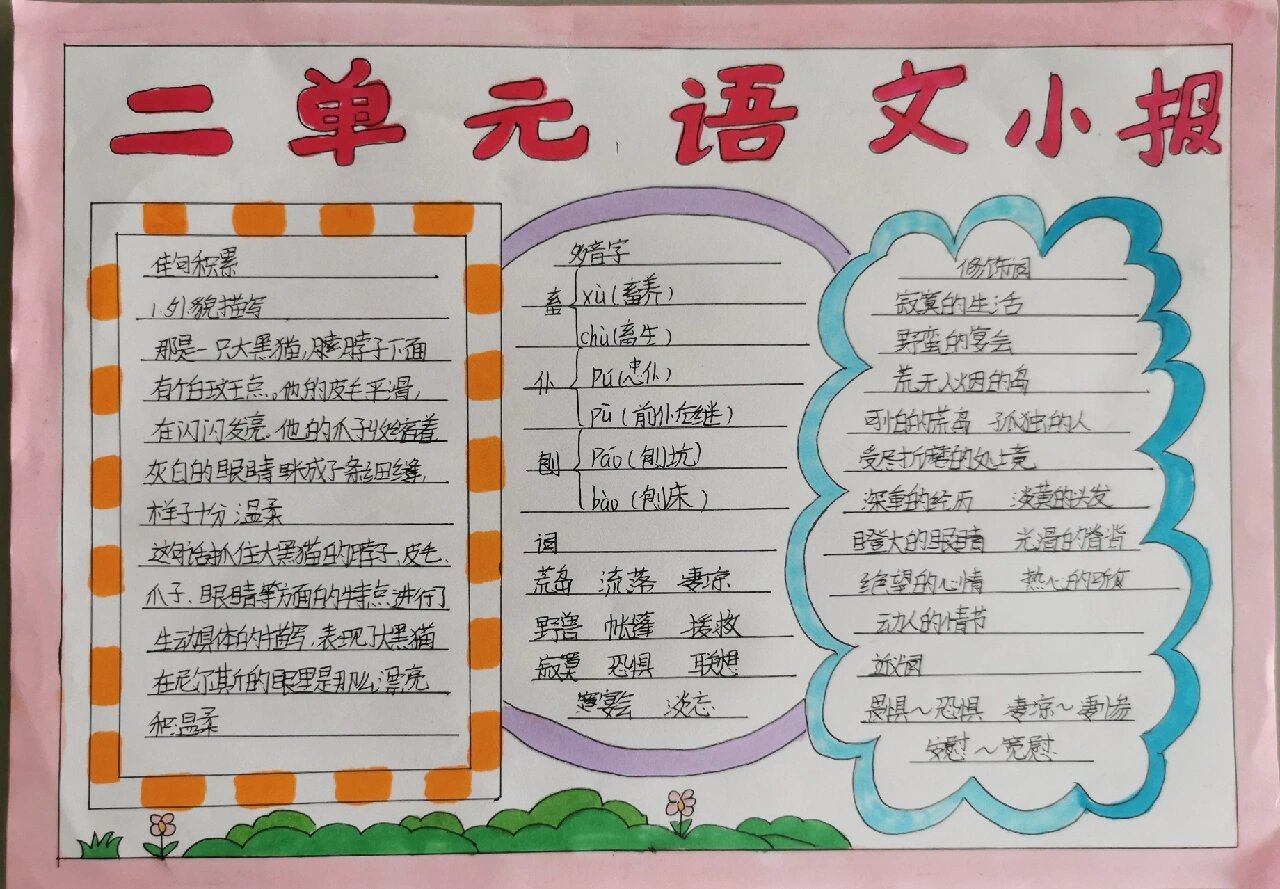 二单元语文小报
佳句积累
1.外貌描写
那是一只大黑猫,脖子下面
有个白斑点。他的皮毛平滑,
在闪闪发亮.他的爪子收缩着
灰白的眼睛眯成了条细缝,
样子十分温柔
这句话抓住大黑猫的脖子.皮毛.
爪子.眼睛等方面的特点进行了
生动具体的描写,表现了大黑猫
在尼尔斯的眼里是那么漂亮
和温柔
多音字
畜
xù(畜养)
chù(畜生)
仆
pú(忠仆)
pū(前仆后继)
刨
páo(刨坑)
bào(刨床)
词
荒岛 流落 凄凉
野兽 帐篷 援救
寂寞 恐惧 联想
宴会 淡忘
修饰词
寂寞的生活
野蛮的宴会
荒无人烟的岛
可怕的荒岛 孤独的人
受尽折磨的处境
深重的经历 淡黄的头发
瞪大的眼睛 光滑的
绝望的心情 热心的
动人的情节
近词
畏惧~恐惧 凄凉~凄惨
安慰~宽慰